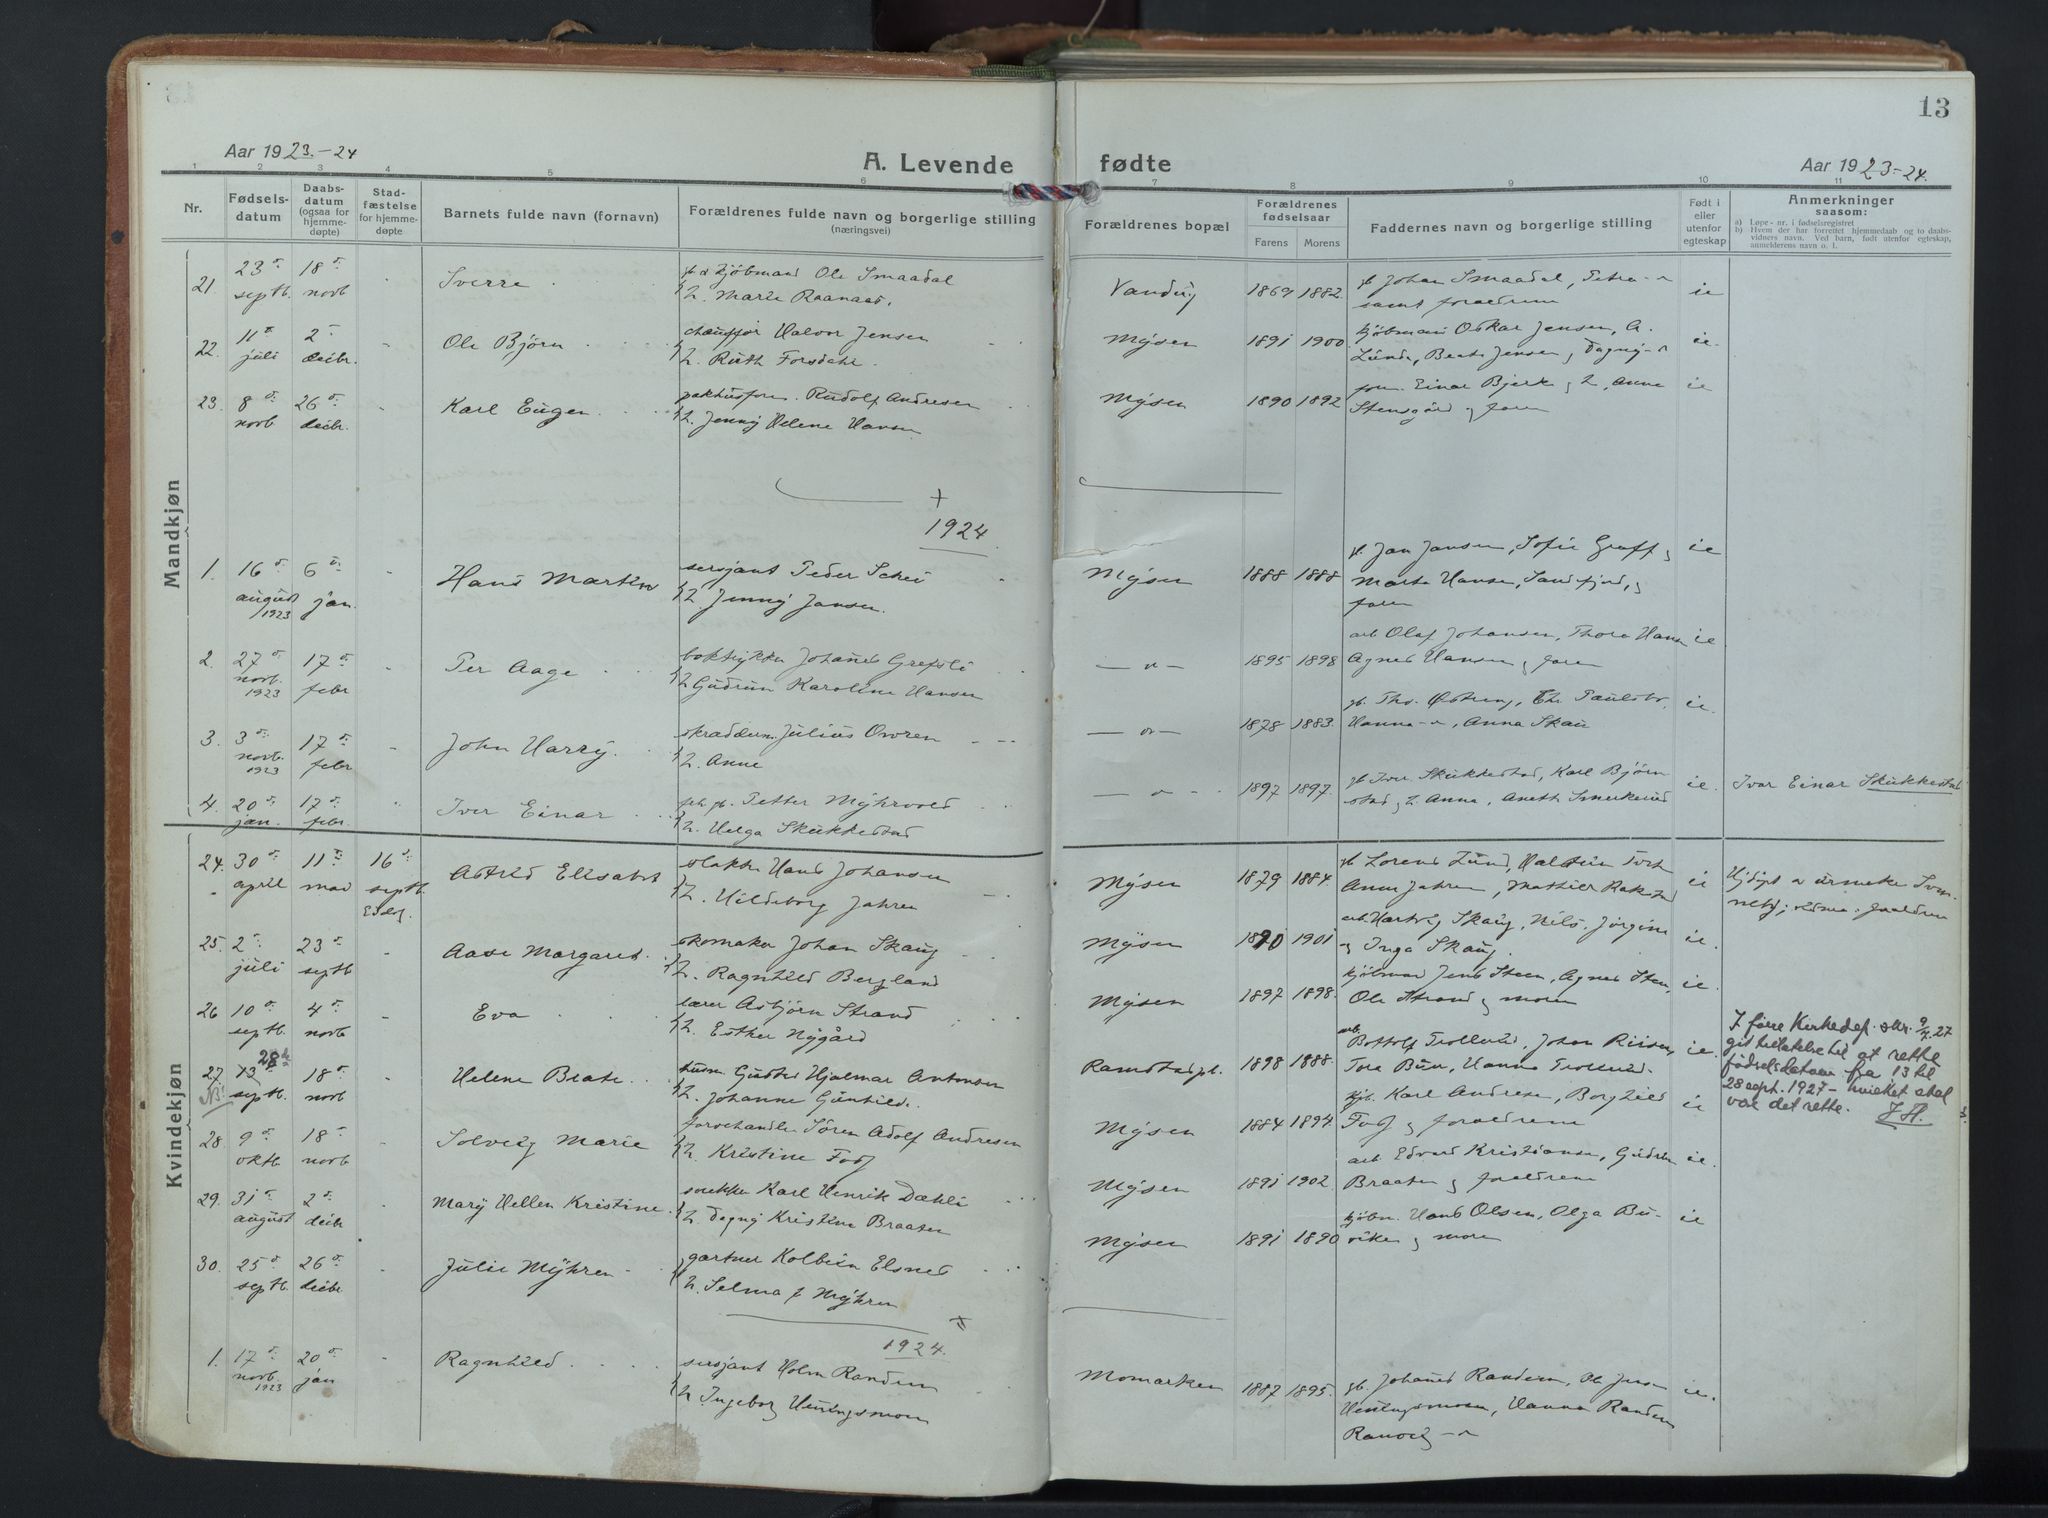 13
Aar 1923.-24
A. Levende fødte
Aar 1923-24.
1 2 3 4 5 6 7 8 9 10 11
Nr.
Fødsels-
datum
Daabs-
datum
(ogsaa for
hjemme-
døpte)
Stad-
fæstelse
for hjemme-
døpte
Barnets fulde navn (fornavn)
Forældrenes fulde navn og borgerlige stilling
(næringsvei)
Forældrenes bopæl
Forældrenes
fødselsaar
Farens Morens
Faddernes navn og borgerlige stilling
Født i
eller
utenfor
egteskap
Anmerkninger
saasom:
a) Løpe-nr. i fødselsregistret
b) Hvem der har forrettet hjemmedaab og to daabs-
vidners navn. Ved barn, født utenfor egteskap,
anmelderens navn o. l.
Mandkjøn
21 23 septb. 18 novb Sverre
kjøbmand Ole Smaadal
h. Marie Raanaas.
1869 1882.
Johan Smaadal, Petra -"-
samt forældrene
ie
22. 11 juli 2 decbr. Ole Bjørn
chauffør Halvor Jensen
h. Ruth Forsdahl.
Mysen 1891 1900
kjøbman Oskar Jensen, A.
Lund, Beate Jensen, Dagny -"-
ie.
23. 8 novb 26 decbr. Karl Eugen
pakhusform. Rudolf Andresen
h. Jenny Helene Hansen
Mysen 1890 1892
form. Einar Bjerk og h, Anne
Stensgård og faren
ie
1924
1. 16 august 1923 6 jan. Hans Martin
sersjant Peder Schei
h. Jenny Jansen.
Mysen 1888 1888
Jan Jansen, Sofie Graff og
Marta Hansen, Sandefjord, og
faren
ie
2. 27 novb. 1923 17 febr Per Aage
boktrykker Johanes Grefsli
h Gudrun Karoline Hansen
-"- 1895 1898
arb Olaf Johansen, Thora Hansen
Agnes Hansen og faren
ie
3. 3 novb. 1923 17 febr John Harry.
skreddern. Julius Ovren
h. Anne
-"- 1878 1883.
Hanna -"-, Anna Skau
ie.
4. 20 jan. 17 febr. Iver Einar
Petter Myhrvold
h. Helga Skukkestad
-"- 1897 1897.
Iver Skukkestad, Karl Bjørn
stad og h. Anna, Anette
ie.
Ivar Einar Skukkestad
Kvindekjøn
24. 30 april 11 mai 16 septb. Astrid Elisabet
slakter Hans Johansen
h. Hildeborg Jahren
Mysen 1879 1884.
Lorens Lund,
Anna Jahren, Mathilde
ie
25. 2 juli 23 septb Aase Margaret.
skomaker Johan Skaug
h. Ragnhild Bergland
Mysen 1901
arb. Hartvig Skaug, Nils, Jørgine
og Inga Skaug.
ie.
26 10 septb. 4 novb Eva
lærer Asbjørn Strand
h. Esther Nygård
Mysen 1897 1898.
kjøbmand Jens Steen, Agnes Steen,
Ole Strand og moren
ie.
27 NB! 13 28de septb. 18 novb Helene Beate
husm. Gustav Hjalmar Antonsen
h. Johanne Gunhilde.
Ramstadpl. 1898 1888.
arb. Bottolf Trollerud, Johan Riisen,
Tora Buer, Hanna Trollerud.
ie.
I følge Kirkedep. skr. 9/7 27
git tillatelse til at rette
fødselsdatum fra 13 til
28 sept. 1927 - hvilket skal
være det rette.
J.H.
28. 9 oktb. 18 novb Solveig Marie
forvehandler Søren Adolf Andresen
h. Kristine Foss
Mysen 1884 1894
kjb. Karl Andresen, Borghild
Foss og forældrene
ie
29. 31 august 2 decbr Mary Hellen Kristine
snekker Karl Henrik Dæhli
h. Dagny Kristine Braaten
Mysen 1891 1902.
arb Edvard Kristiansen, Gudrun
Braaten og forældrene
ie.
30. 25 septb. 26 decbr Julie Myhren
gartner Kolbein Elsnes
h. Selma f Myhren
Mysen 1891 1890
kjøbm. Hans Olsen, Olga Bu-
viken og moren
ie
1924.
1. 17 novb. 1923 20 jan Ragnhild
sersjant Holm Randem
h Ingeborg Henningsmoen
Momarken 1887 1895.
gb. Johanes Randem, Ole
Henningsmoen, Hanna Randem
Ranveig -"-
ie.